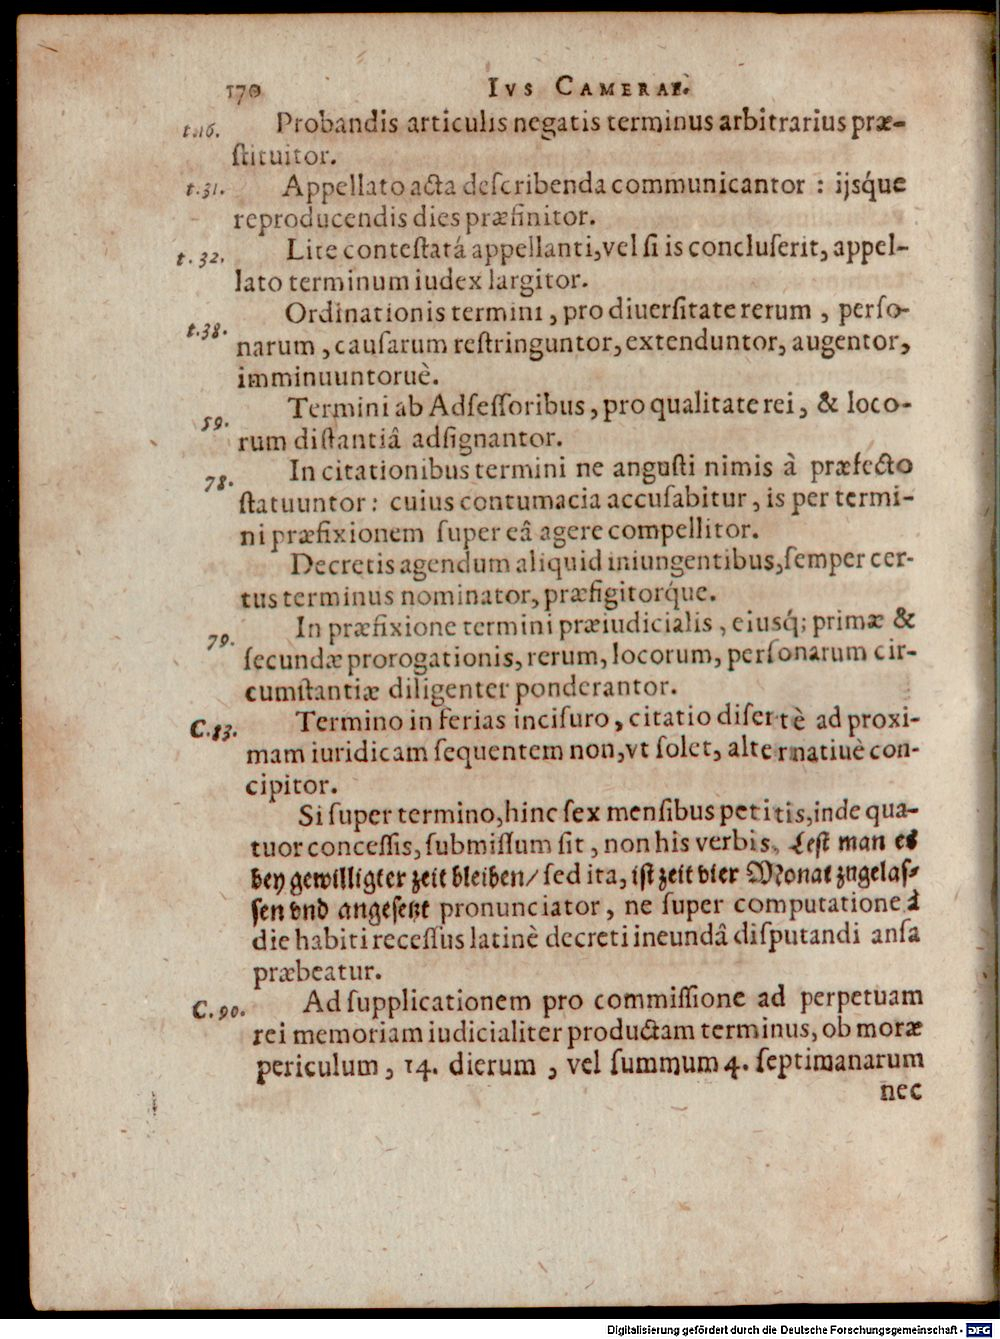 170 IVS CAMERAE.
t.16. Probandis articulis negatis terminus arbitrarius præ-
ſtituitor.
t.31. Appellato acta deſcribenda communicantor : ijsq́ue
reproducendis dies præfinitor.
t.32. Lite conteſtatá appellanti, vel ſi is concluſerit, appel-
lato terminum iudex largitor.
Ordinationis termini, pro diuerſitate rerum, perſo-
t.38. narum, cauſarum reſtringuntor, extenduntor, augentor,
imminuuntoruè.
59. Termini ab Adſeſſoribus, pro qualitate rei, & loco-
rum diſtantiâ adſignantor.
78. In citationibus termini ne anguſti nimis à præfecto
ſtatuuntor: cuius contumacia accuſabitur, is per termi-
ni præfixionem ſuper eâ agere compellitor.
Decretis agendum aliquid iniungentibus, ſemper cer-
tus terminus nominator, præfigitorq́ue.
79. In præfixione termini præiudicialis, eiusq́; primæ &
ſecundæ prorogationis, rerum, locorum, perſonarum cir-
cumſtantiæ diligenter ponderantor.
C.83. Termino in ferias inciſuro, citatio diſertè ad proxi-
mam iuridicam ſequentem non, vt ſolet, alternatiuè con-
cipitor.
Si ſuper termino, hinc ſex menſibus petitis, inde qua-
tuor conceſſis, ſubmiſſum ſit, non his verbis, Leſt man es
bey gewilligter zeit bleiben/ ſed ita, iſt zeit vier Monat zugelaſ-
ſen vnd angeſetzt pronunciator, ne ſuper computatione à
die habiti receſſus latinè decreti ineundâ diſputandi anſa
præbeatur.
C.90. Ad ſupplicationem pro commiſſione ad perpetuam
rei memoriam iudicialiter productam terminus, ob moræ
periculum, 14. dierum, vel ſummum 4. ſeptimanarum
nec
Digitalisierung gefördert durch die Deutsche Forschungsgemeinschaft - DFG